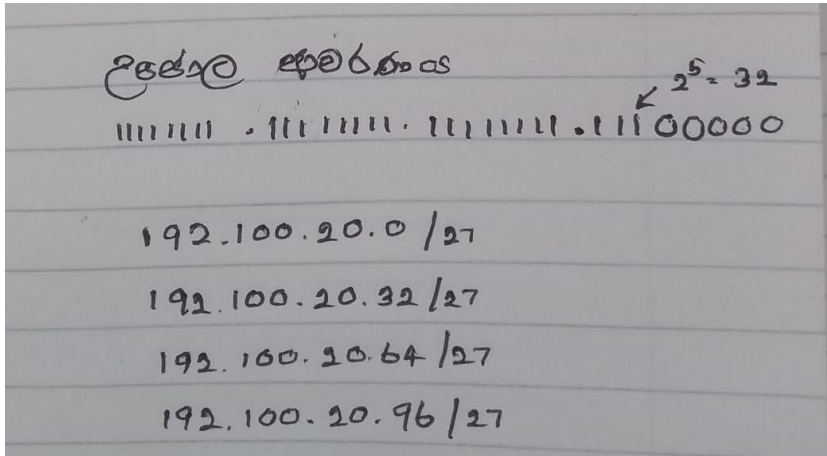 2⁵ = 32
11111111 . 11111111 . 11111111 . 11100000
192.100.20.0 /27
192.100.20.32 /27
192.100.20.64 /27
192.100.20.96 /27